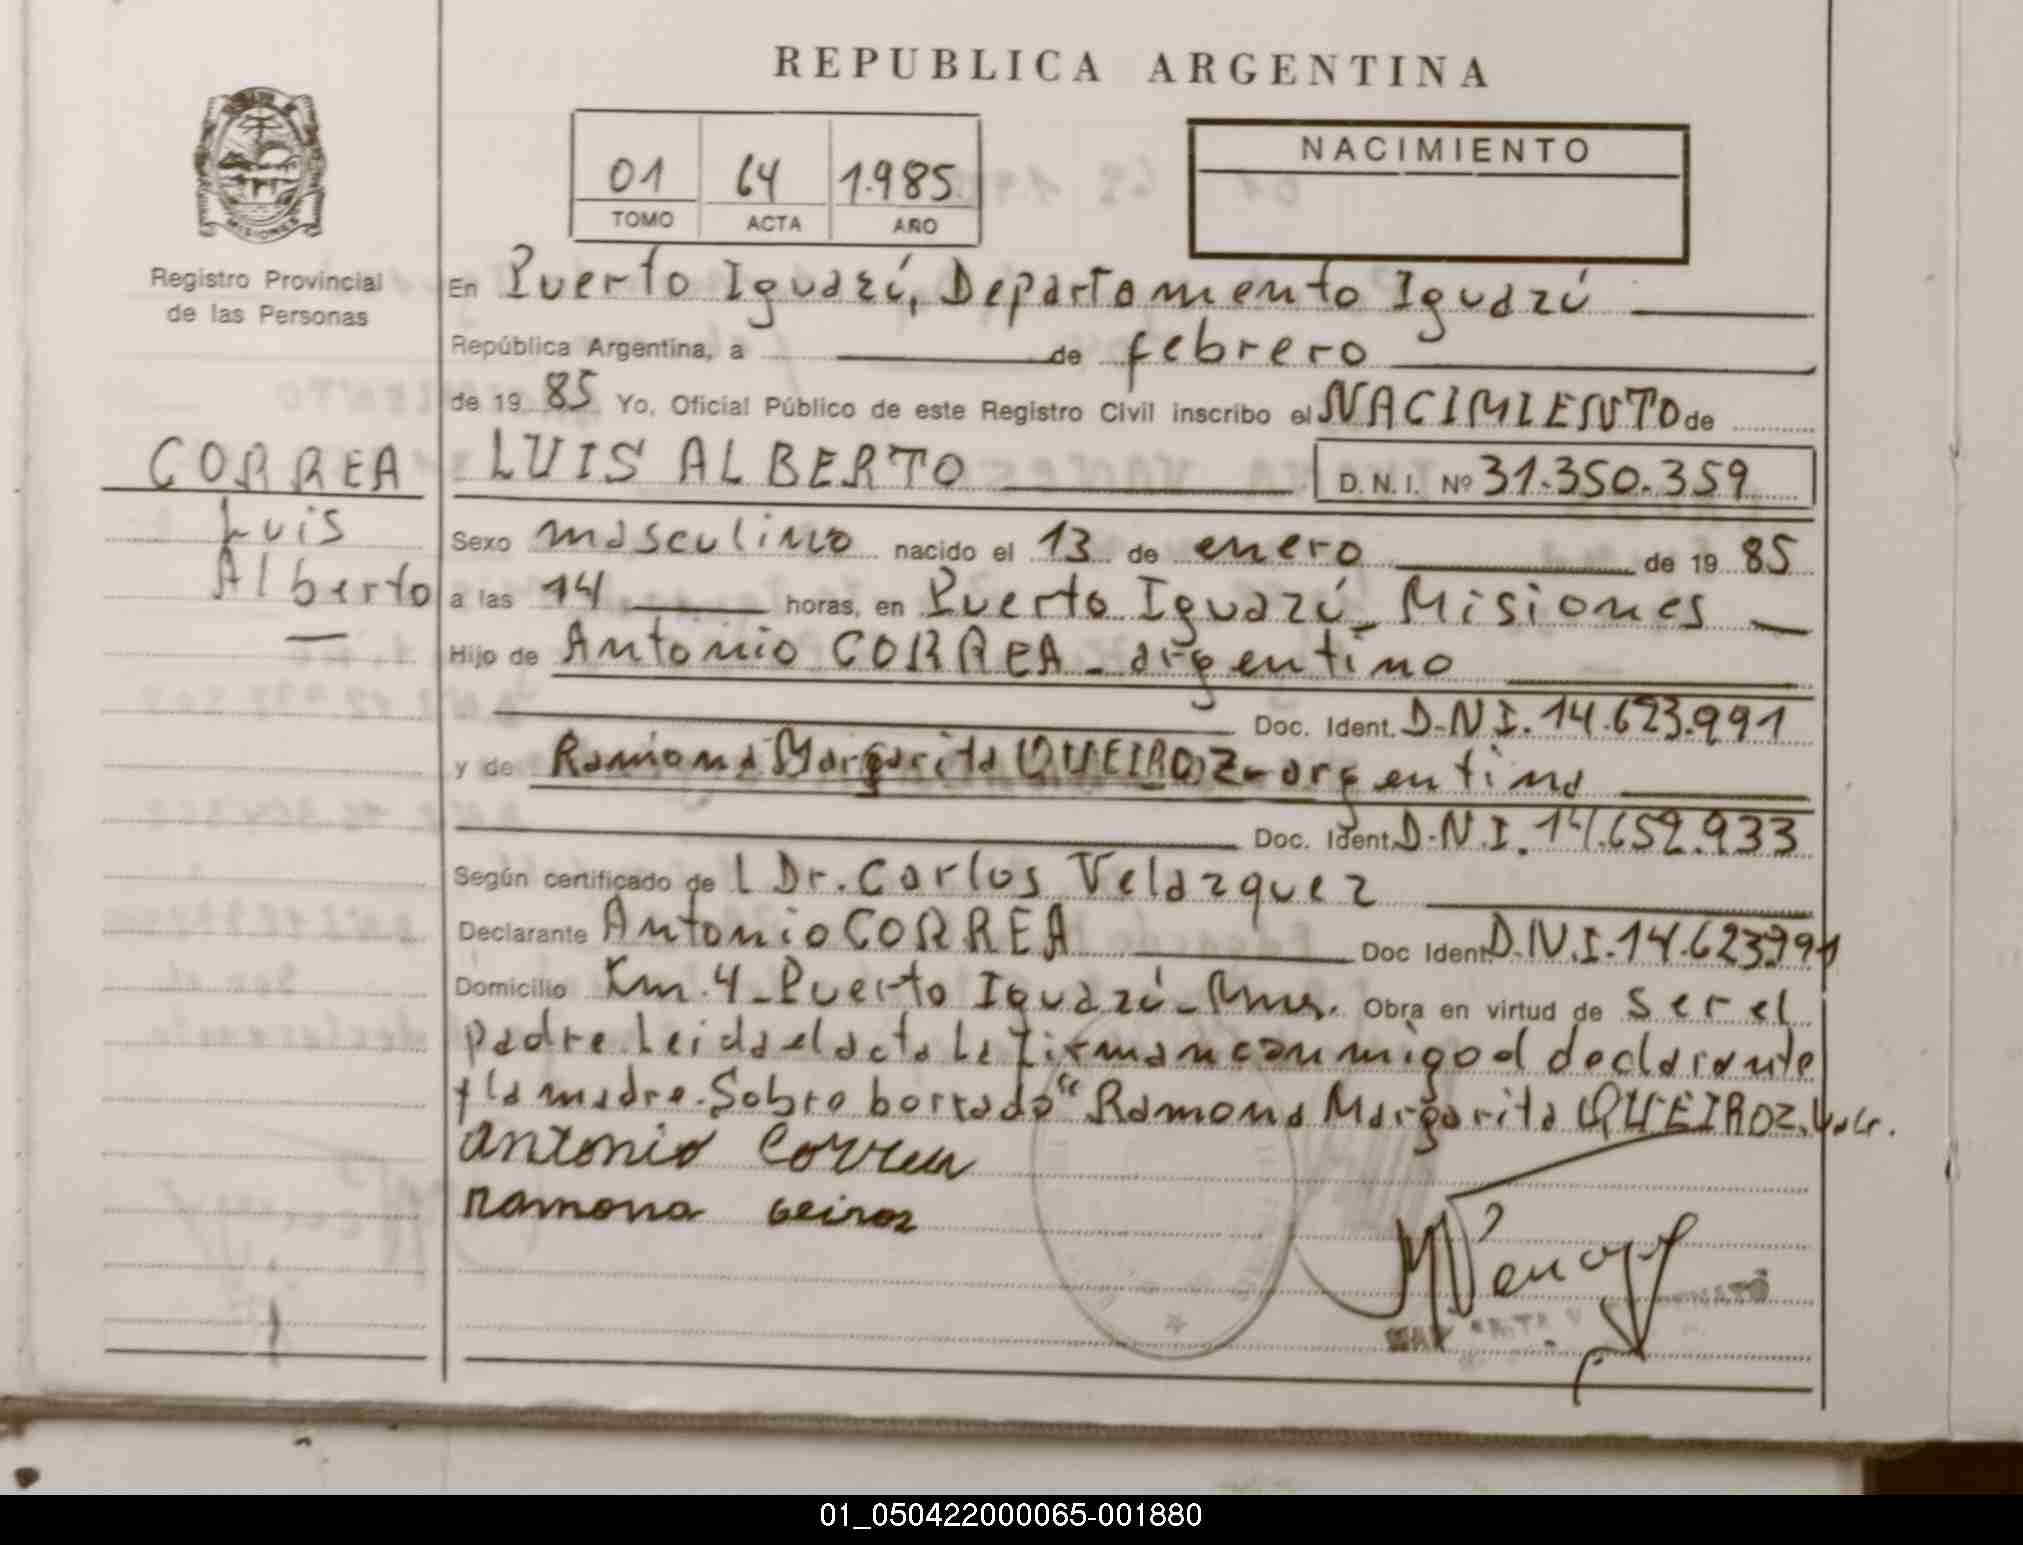 REPUBLICA ARGENTINA
01 64 1.985
TOMO ACTA AÑO
NACIMIENTO
MISIONES
Registro Provincial
de las Personas
En Puerto Iguazú, Departamento Iguazú
República Argentina, a de febrero
de 19 85 Yo, Oficial Público de este Registro Civil inscribo el NACIMIENTO de
CORREA
Luis
Alberto
LUIS ALBERTO D.N.I. Nº 31.350.359
Sexo masculino nacido el 13 de enero de 19 85
a las 14 horas, en Puerto Iguazú - Misiones
Hijo de Antonio CORREA - argentino
Doc. Ident. D.N.I. 14.623.991
y de Ramona Margarita QUEIROZ - argentina
Doc. Ident. D.N.I. 14.652.933
Según certificado de l Dr. Carlos Velazquez
Declarante Antonio CORREA Doc Ident. D.N.I. 14.623.991
Domicilio Km. 4 - Puerto Iguazú - Mnes. Obra en virtud de ser el
padre. Leida el acta la firman conmigo el declarante
y la madre. Sobre borrado "Ramona Margarita QUEIROZ. Vale.
antonio Correa
Ramona
01_050422000065-001880